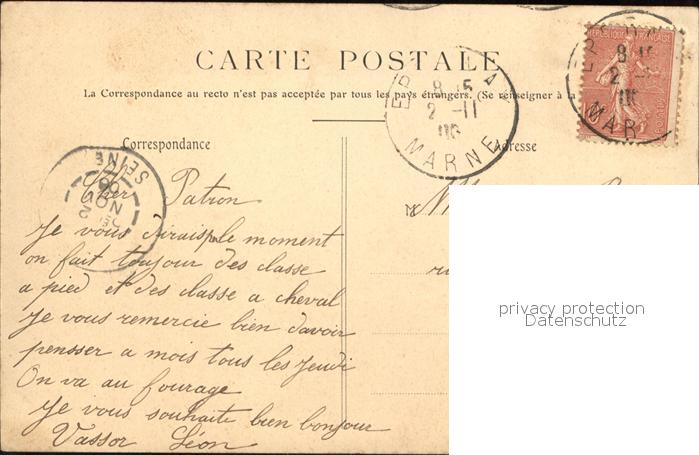 CARTE POSTALE
La Correspondance au recto n'est pas acceptée par tous les pays étrangers. (Se renseigner à la
REPUBLIQUE FRANÇAISE
8 15
2 -11
MARNE
8 15
2
MAR
Correspondance
Adresse
SEINE
NOV
Cher Patron
M
Je vous dirais le moment
on fait toujour des classe
a pied et des classe a cheval
Je vous remercie bien davoir
pensser a mois tous les jeudi
On va au fourage
Je vous souhaite bien bonjour
Vassor Léon
privacy protection
Datenschutz